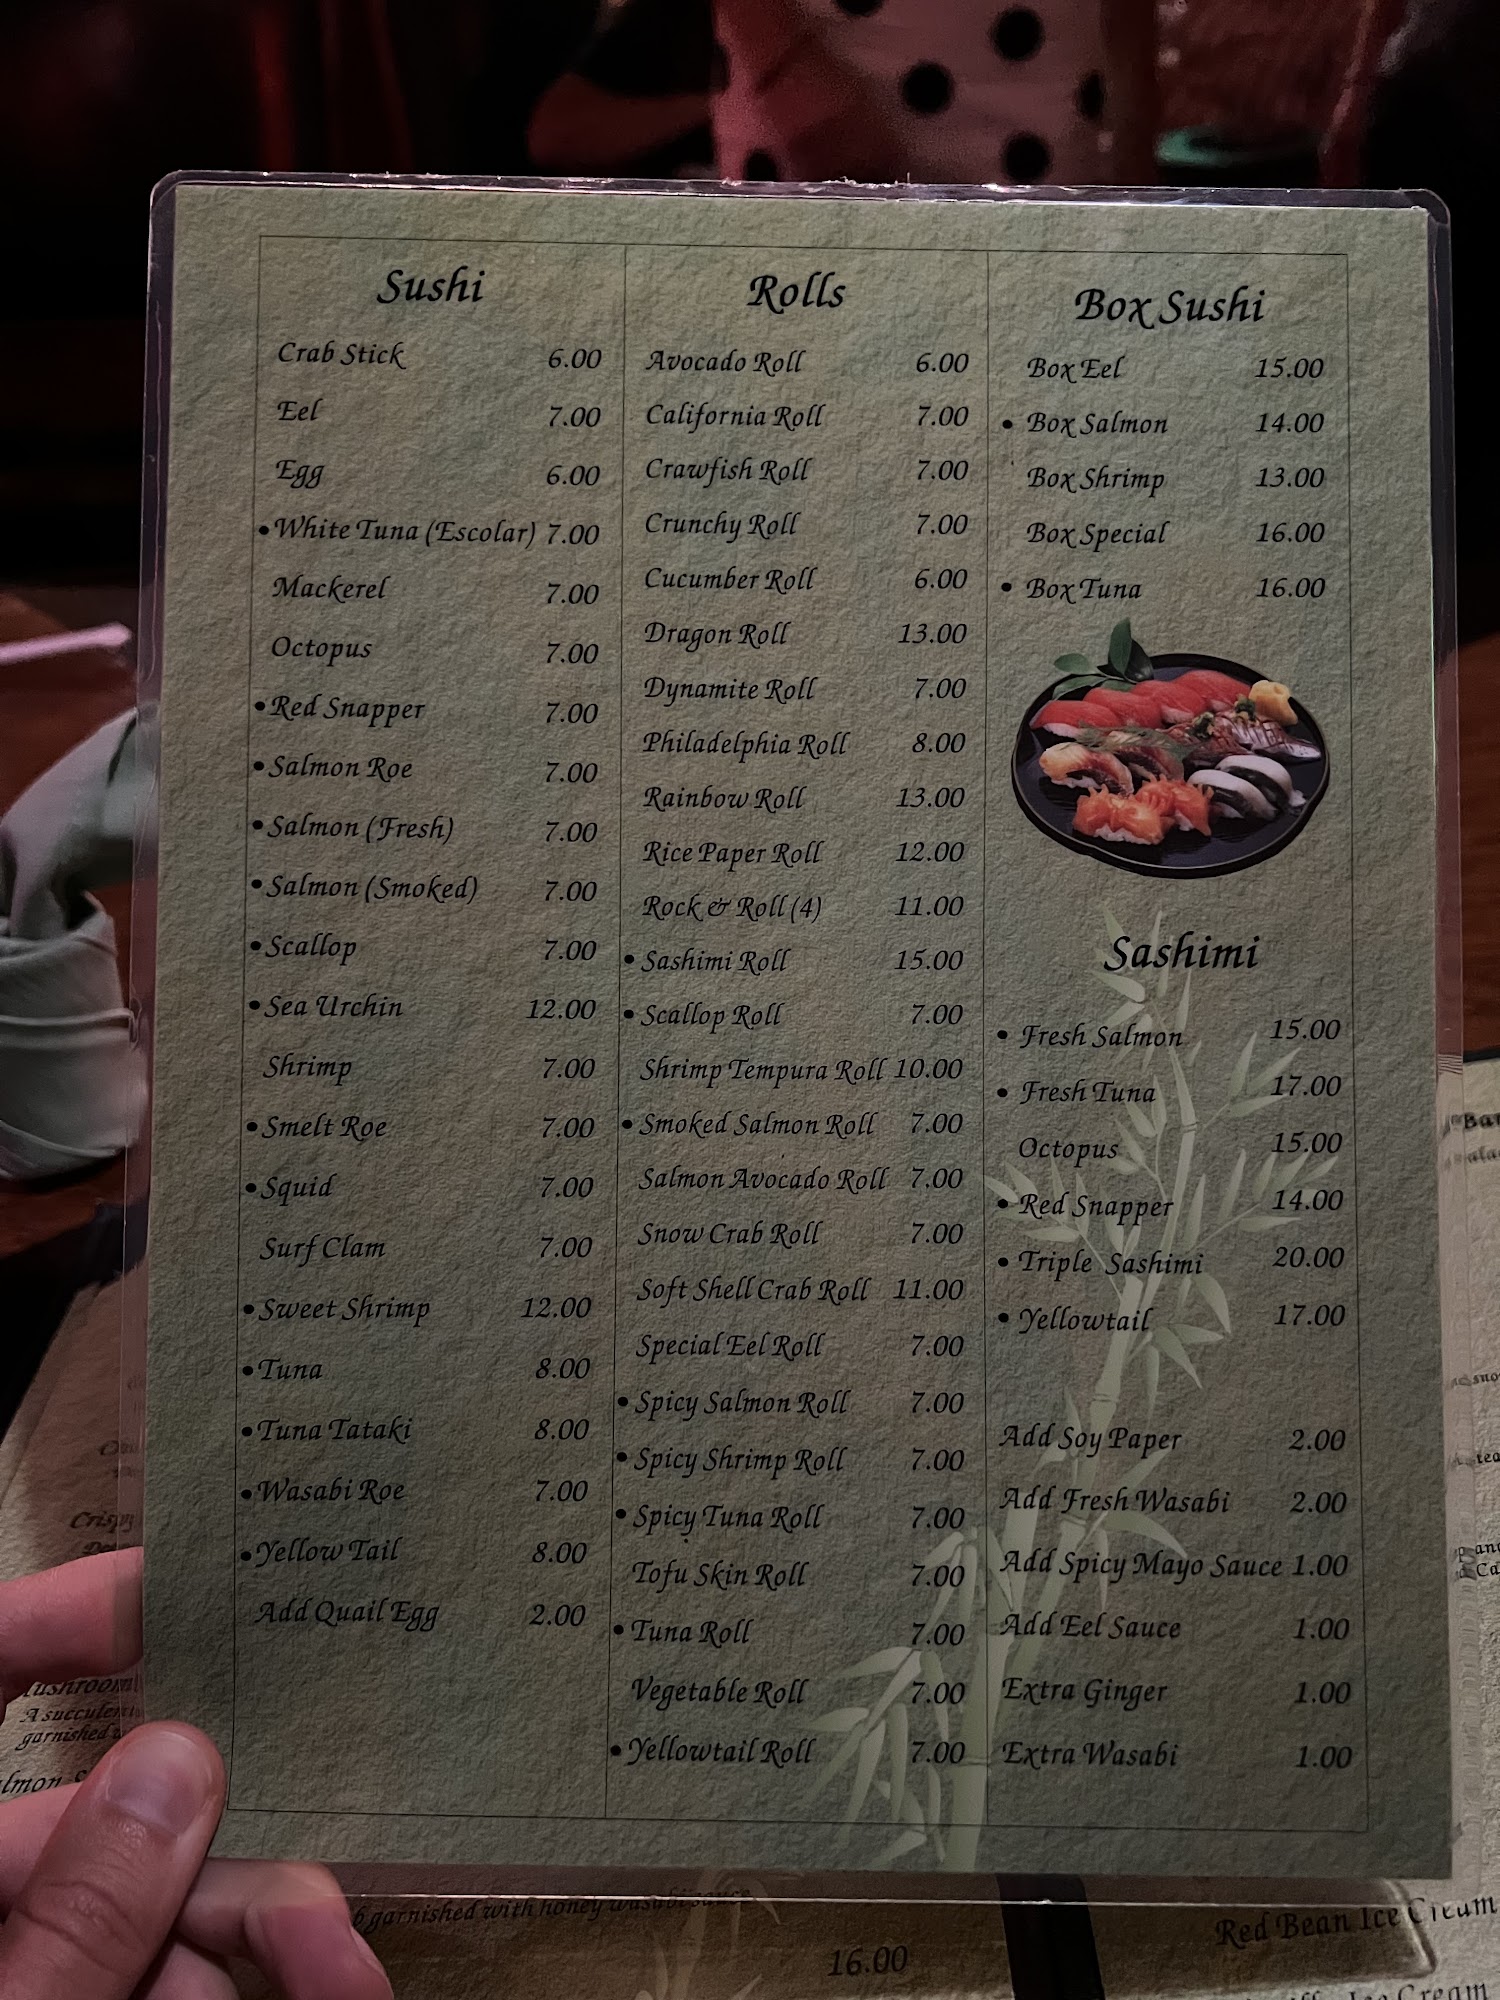 Sushi
Crab Stick 6.00
Eel 7.00
Egg 6.00
• White Tuna (Escolar) 7.00
Mackerel 7.00
Octopus 7.00
• Red Snapper 7.00
• Salmon Roe 7.00
• Salmon (Fresh) 7.00
• Salmon (Smoked) 7.00
• Scallop 7.00
• Sea Urchin 12.00
Shrimp 7.00
• Smelt Roe 7.00
• Squid 7.00
Surf Clam 7.00
• Sweet Shrimp 12.00
• Tuna 8.00
• Tuna Tataki 8.00
• Wasabi Roe 7.00
• Yellow Tail 8.00
Add Quail Egg 2.00
Rolls
Avocado Roll 6.00
California Roll 7.00
Crawfish Roll 7.00
Crunchy Roll 7.00
Cucumber Roll 6.00
Dragon Roll 13.00
Dynamite Roll 7.00
Philadelphia Roll 8.00
Rainbow Roll 13.00
Rice Paper Roll 12.00
Rock & Roll (4) 11.00
• Sashimi Roll 15.00
• Scallop Roll 7.00
Shrimp Tempura Roll 10.00
• Smoked Salmon Roll 7.00
Salmon Avocado Roll 7.00
Snow Crab Roll 7.00
Soft Shell Crab Roll 11.00
Special Eel Roll 7.00
• Spicy Salmon Roll 7.00
• Spicy Shrimp Roll 7.00
• Spicy Tuna Roll 7.00
Tofu Skin Roll 7.00
• Tuna Roll 7.00
Vegetable Roll 7.00
• Yellowtail Roll 7.00
Box Sushi
Box Eel 15.00
• Box Salmon 14.00
Box Shrimp 13.00
Box Special 16.00
• Box Tuna 16.00
Sashimi
• Fresh Salmon 15.00
• Fresh Tuna 17.00
Octopus 15.00
• Red Snapper 14.00
• Triple Sashimi 20.00
• Yellowtail 17.00
Add Soy Paper 2.00
Add Fresh Wasabi 2.00
Add Spicy Mayo Sauce 1.00
Add Eel Sauce 1.00
Extra Ginger 1.00
Extra Wasabi 1.00
garnished with honey wasabi sauce
16.00
Red Bean Ice Cream
Ice Cream